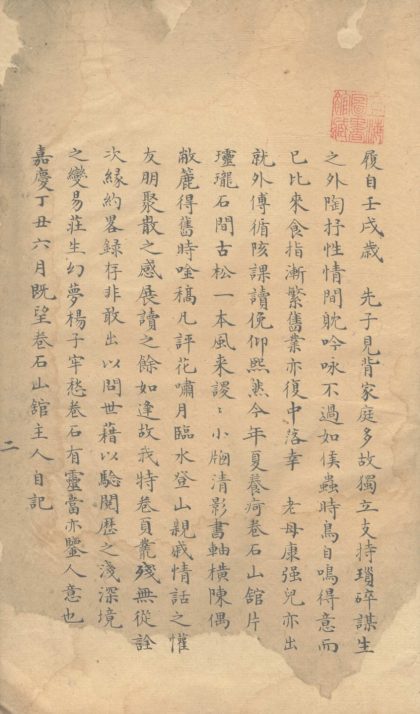 履自壬戌歲　先子見背家庭多故獨立支持瑣碎謀生
之外陶抒性情間躭吟咏不過如候蟲時鳥自鳴得意而
已比來食指漸繁舊業亦復中落幸　老母康强兒亦出
就外傅循陔課讀俛仰熙然今年夏養疴卷石山舘片
瓏石間古松一本風来謖〻小牎清影書軸橫陳偶
敝簏得舊時唫稿凡評花嘯月臨水登山親戚情話之懽
友朋聚散之感展讀之餘如逢故我特卷頁叢殘無從詮
次緣約畧錄存非敢出以問世藉以騐閱歷之淺深境
之變易莊生幻夢楊子牢愁卷石有靈當亦鑒人意也
嘉慶丁丑六月既望卷石山舘主人自記
二